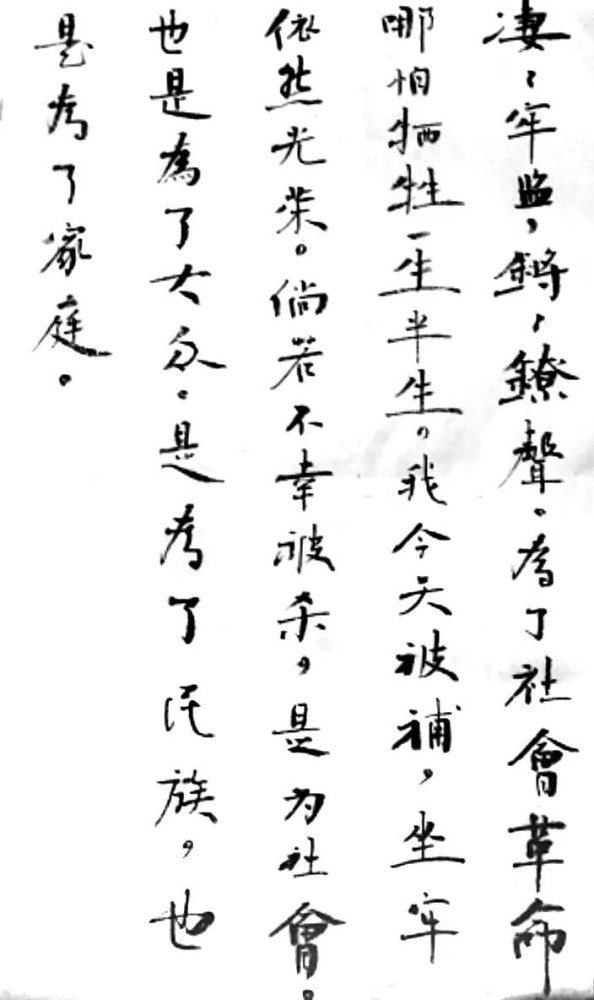 凄〻牢監，鏘〻鐐聲。為了社會革命
哪怕牺牲一生半生。我今天被補，坐牢
依然光荣。倘若不幸被杀，是为社會。
也是為了大众。是為了民族，也
是為了家庭。